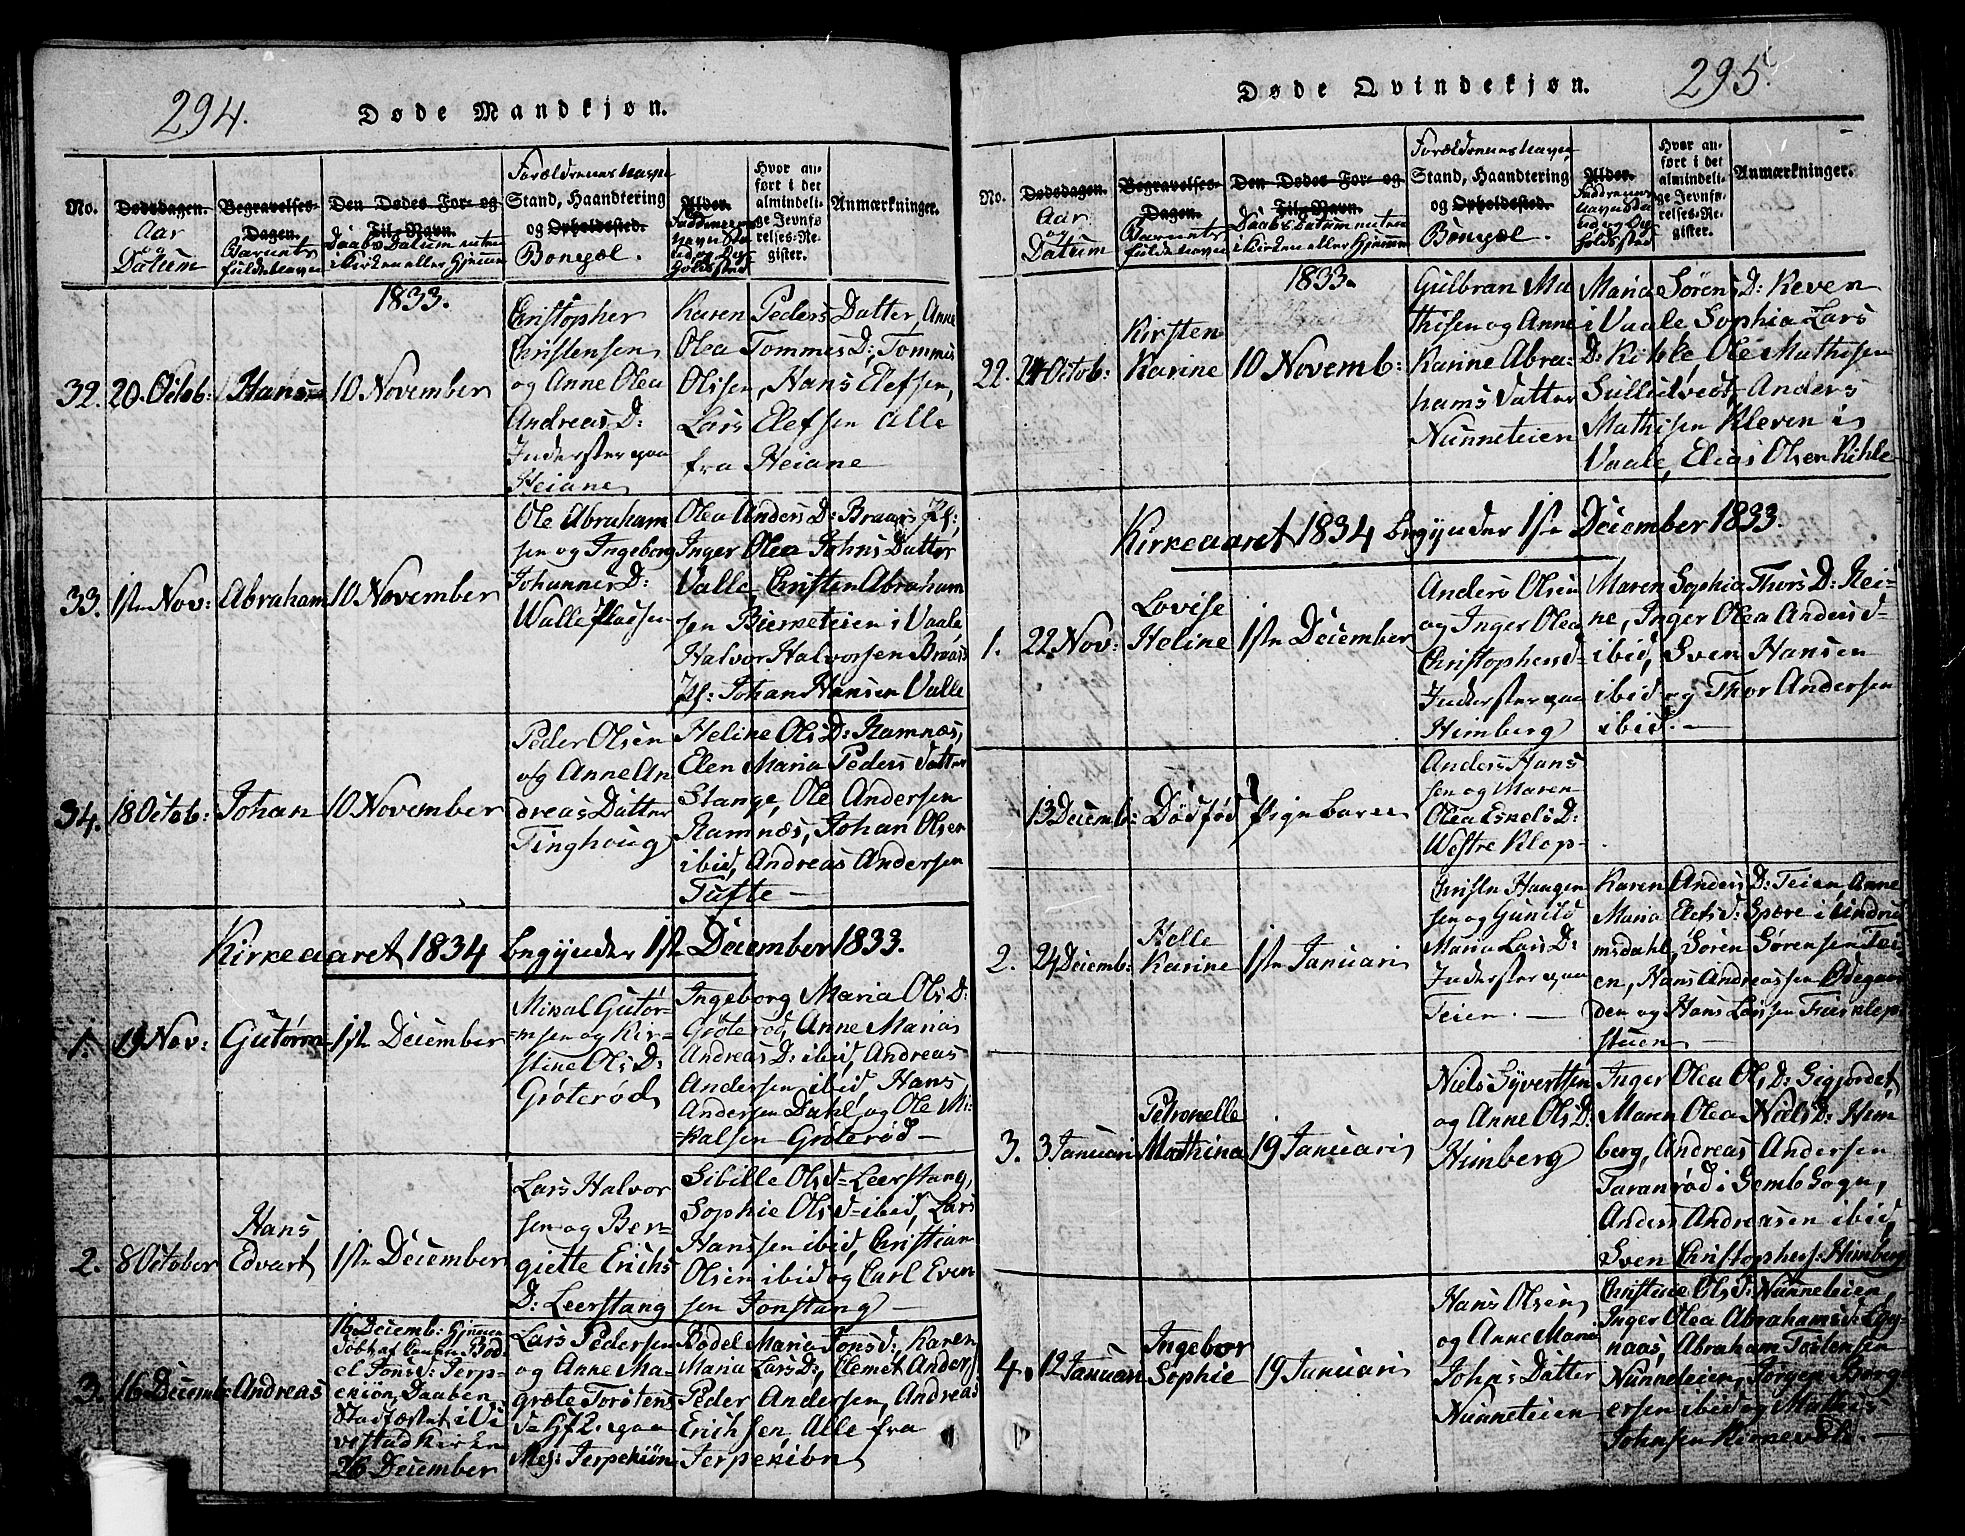 294.
Døde Mandkjøn.
No.
Dødsdagen.
Aar
og
Datum
Begravelses-
Dagen.
Barnets
fulde Navn
Den Dødes For- og
Til-Navn.
Daabs Datum enten
i Kirken eller Hjemme
Forældrenes Navne
Stand, Haandtering
og Opholdssted.
Bopæl.
Alder.
Faddernes
Navn Sta
nd og Op
holdssted
Hvor an-
ført i det
almindeli-
ge Jevnfø-
relses-Re-
gister.
Anmærkninger.
1833.
32.
20. Octob:
Hans
10 November
Christopher
Christensen
og Anne Olea
Andreas D:
Inderster paa
Heiane
Karen Peders Datter, Anne
Olea Tommes D:, Tommes
Olssen, Hans Elefsen,
Lars Elefsen Alle
fra Heiane
33.
1ste Nov:
Abraham
10 November
Ole Abraham
sen og Ingeborg
Johannes D:
Walle Pladsen
Olea Anders D: Braars Pl:,
Inger Olea Johns Datter
Valle, Christen Abraham
sen Bierketeien i Vaale
Halvor Halvorsen Braars
Pl: Johan Hansen Valle
34.
18 Octob:
Johan
10 November
Peder Olsen
og Anne An
dreas Datter
Tinghoug
Heline Ols D: Ramnæs,
Elen Maria Peders Datter
Stange, Ole Andersen
Ramnæs, Johan Olsen
ibid, Andreas Andersen
Tufte —
Kirkeaaret 1834 begynder 1ste December 1833.
1.
19 Nov:
Gutorm
1ste December
Mikal Gutor-
msen og Kir-
stine Ols D:
Gröteröd
Ingeborg Maria Ols D:
Gröteröd, Anne Maria
Andreas D: ibid, Andreas
Andersen ibid, Hans
Andersen Dahl, og Ole Mi-
kalsen Gröteröd —
2.
8 October
Hans
Edvart
1ste December
Lars Halvor
sen og Ber-
giette Erichs
D: Leerstang
Sibille Ols d= Leerstang,
Sophie Ols d= ibid, Lars
Hanssen ibid, Christian
Olsen ibid og Carl Even
sen Jonstang —
3.
16 Decemb:
Andreas
16 Decemb: Hjemme
döbt af Conen Bod
el Jons D: Jerp-
ekion, Daaben
Stadfæstet i Vi
vestad Kirke
26 December
Lars Pedersen
og Anne Ma-
grete Torstens
D: paa
Jerpekiön
Bodel Maria Jons d:, Karen
Maria Lars D:, Clemet Anders
Peder Andersen, Andreas
Erichsen, Alle fra
Jerpekiön
295.
Døde Qvindekjøn.
No.
Dødsdagen.
Aar
og
Datum
Begravelses-
Dagen.
Barnets
fulde Navn
Den Dødes For- og
Til-Navn.
Daabs Datum enten
i Kirken eller Hjemme
Forældrenes Navne
Stand, Haandtering
og Opholdssted.
Bopæl.
Alder.
Faddernes
Navn Sta
nd og Op
holdssted
Hvor an-
ført i det
almindeli-
ge Jevnfø-
relses-Re-
gister.
Anmærkninger.
1833.
22.
24 Octob:
Kirsten
Karine
10 Novemb:
Gulbran Ma
thisen og Anne
Karine Abra-
hams Datter
Nunneteien
Maria Sørens D: Keven
i Vaale, Sophia Lars
D: Kihle, Ole Mathisen
Sullidvedt, Anders
Mathisen Kleven i
Vaale, Elias Olsen Kihle
Kirkeaaret 1834 begynder 1ste December 1833.
1.
22 Nov:
Lovise
Heline
1ste December
Anders Olsen
og Inger Olea
Christophersd-
Inderster paa
Himberg
Maren Sophia Thors D: Hei-
ne, Inger Olea Andersd-
ibid, Sven Hansen
ibid og Thor Andersen
ibid. —
13 Decemb:
Dödföd Pige barn
Anders Hans
sen og Maren
Olea Eskels D:
Westre Klop-
2.
24 Decemb:
Helle
Karine
1ste Januari
Christen Haagen
sen og Gunild
Maria Lars D:
Inderster paa
Teien. —
Karen Anders D: Teien, Anne
Maria Elets d: Spere i Undru
msdahl, Sören Sörensen Tei-
en, Hans Andreassen Ödegaar
den og Hans Larssen
stuen —
3.
3 Januari
Petronelle
Mathina
19 Januari
Niels Syvertsen
og Anne Ols D:
Himberg
Inger Olea Ols D: Gigjordet,
Maren Olea Niels D: Him
berg, Andreas Andersen
Taranröd i Semb Sogn,
Anders Andreasen ibid,
Sven Christophers: Himberg
4.
12 Januari
Ingebor
Sophie
19 Januari
Hans Olsen
og Anne Maria
Johns Datter
Nunneteien
Christine Ols d: Nunneteien
Inger Olea Abrahams d:
naas, Abraham Tostensen
Nunneteien, Jørgen Borg-
ersen ibid og Mathis
Johnsen